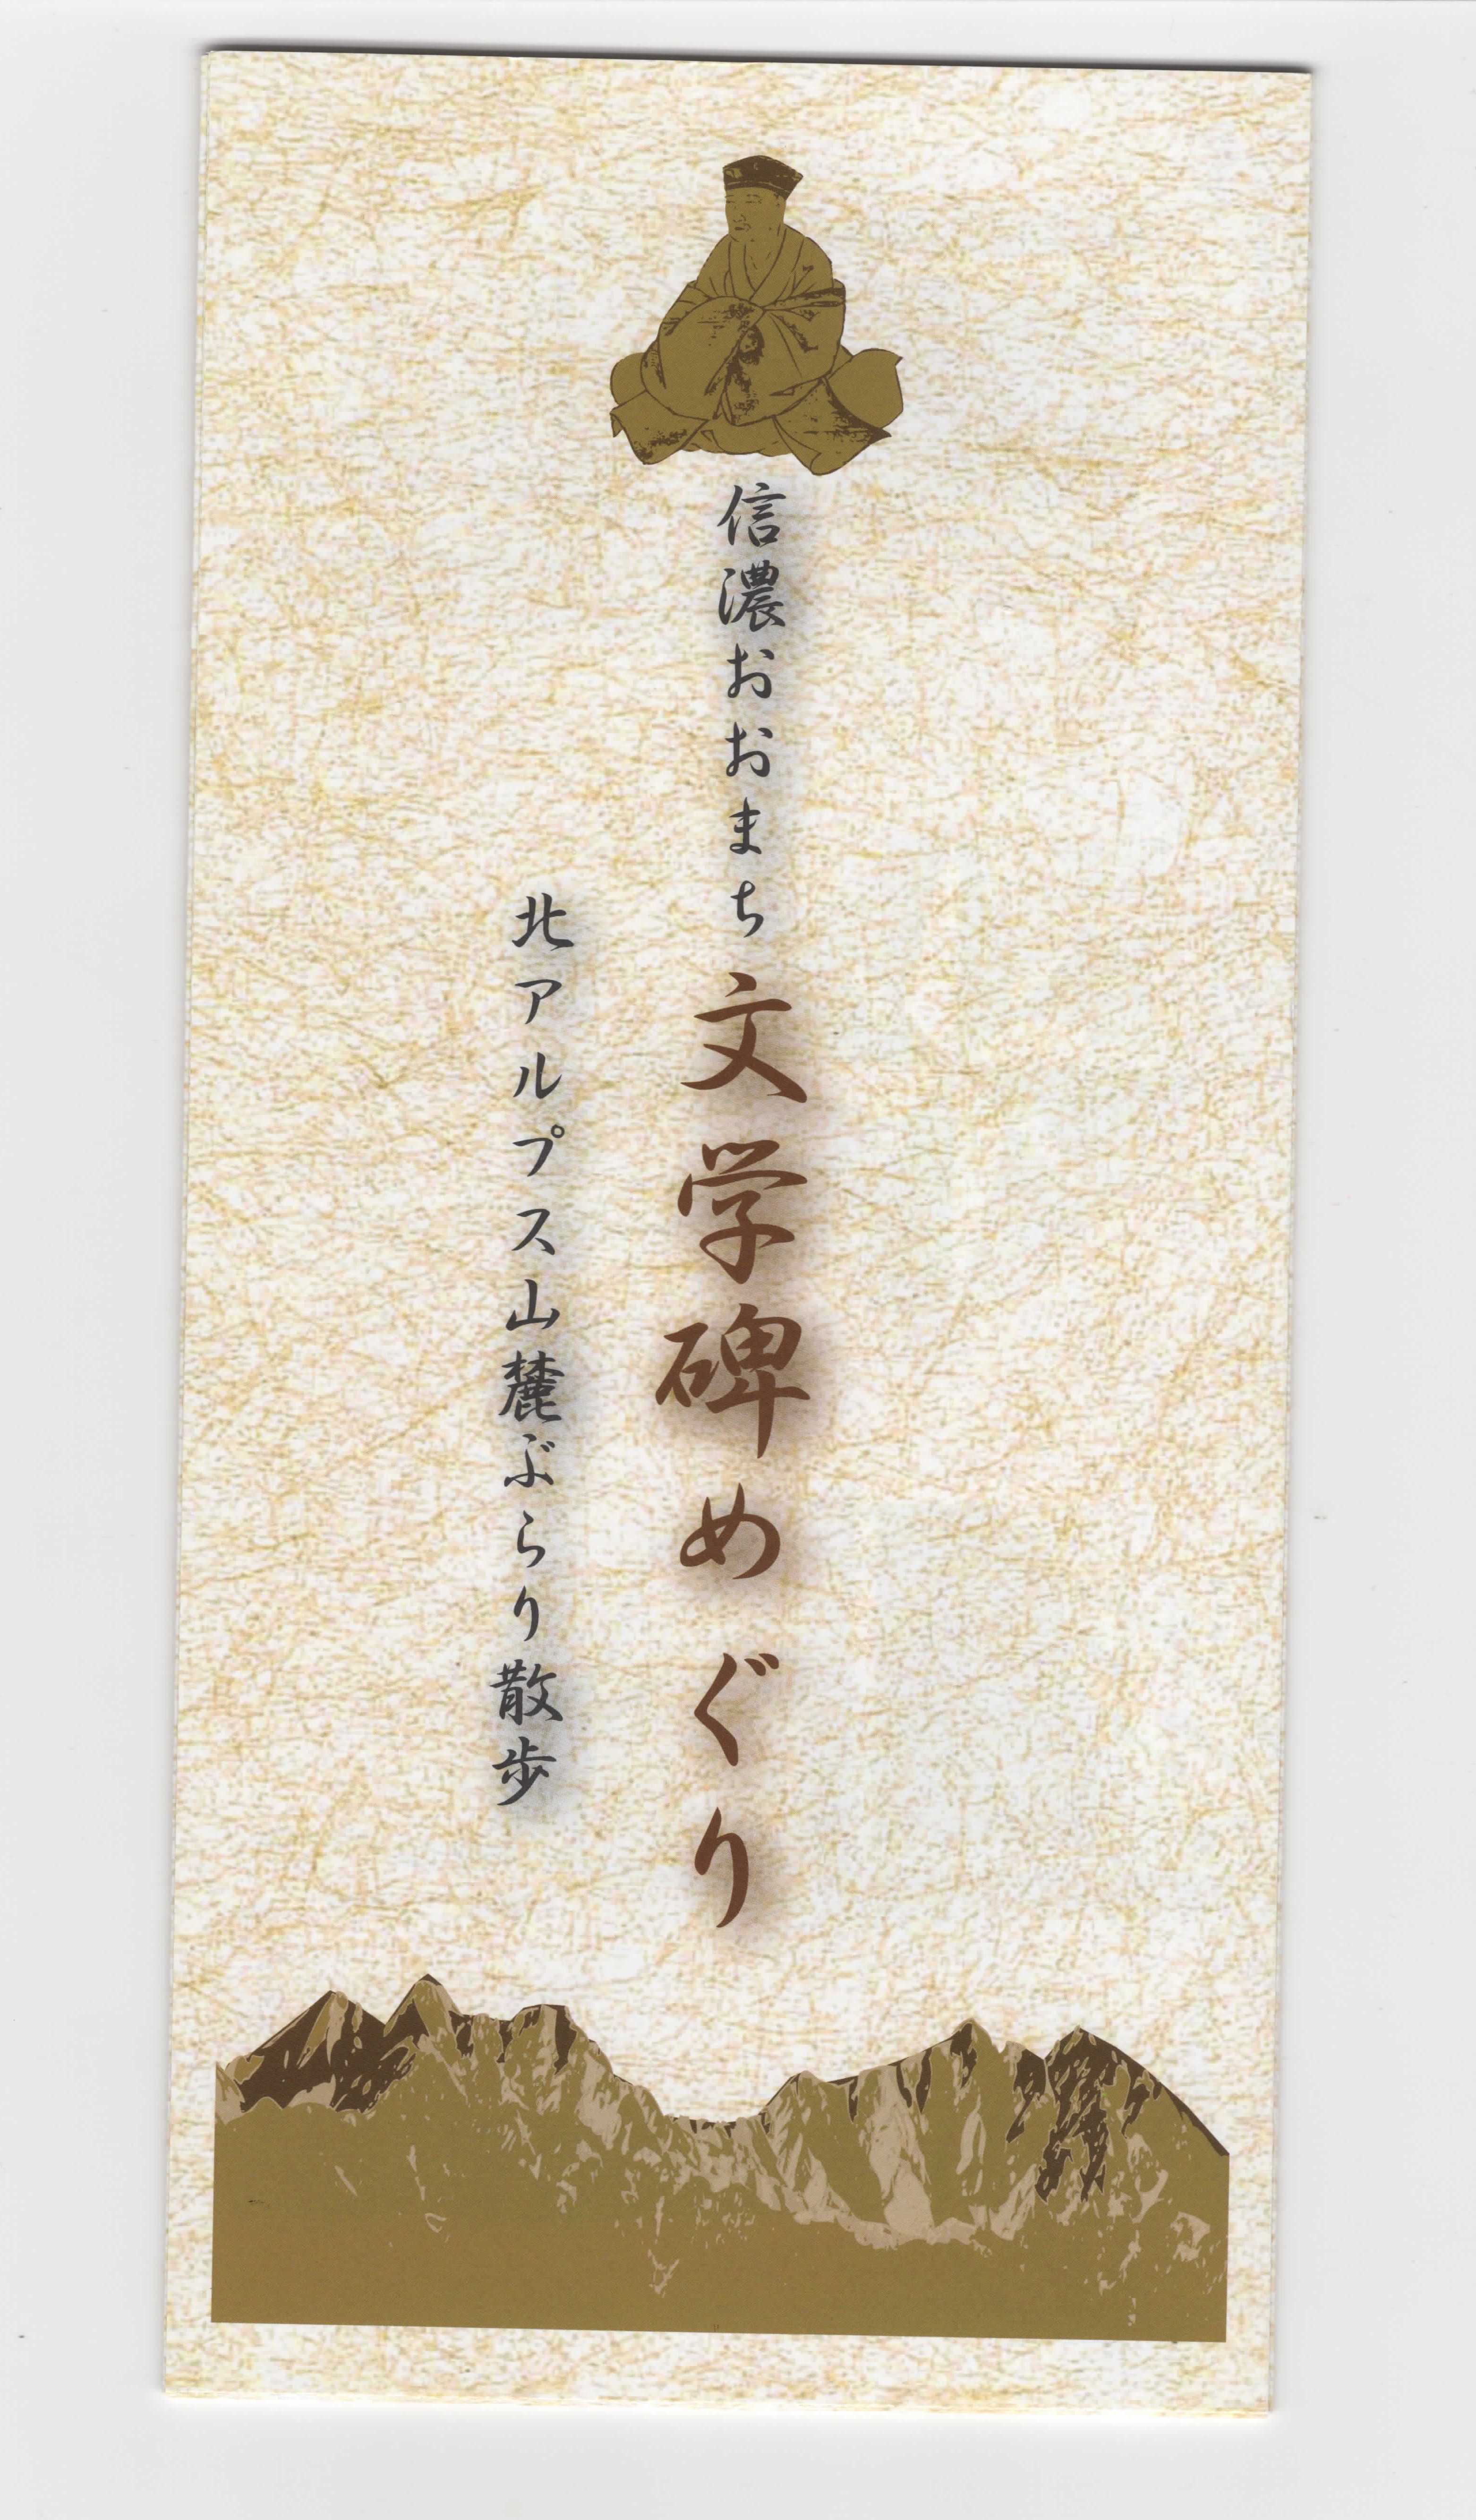 信濃おおまち文学碑めぐり
北アルプス山麓ぶらり散歩